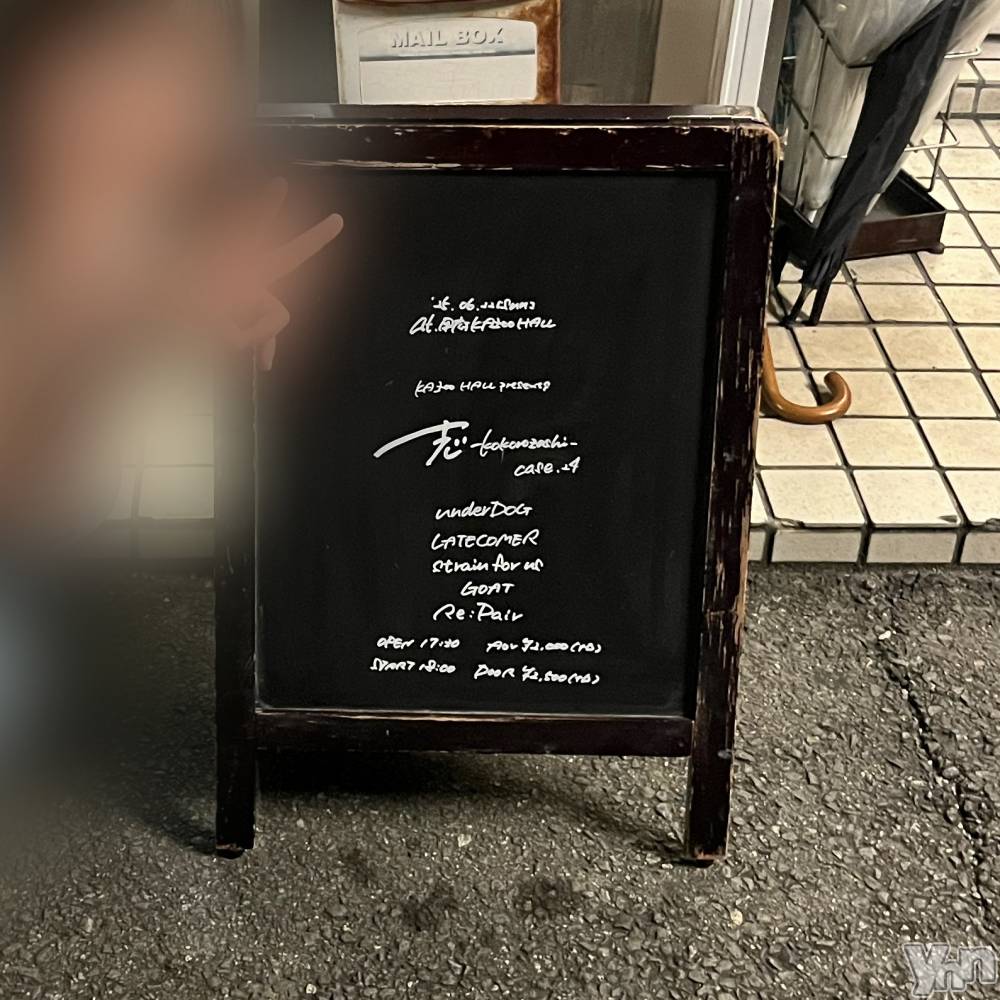 MAIL BOX
'25. 06. 22 (SUN)
at. 甲府 KAZOO HALL
KAZOO HALL presents
志 -kokorozashi-
case. 24
underDOG
LATECOMER
strain for us
GOAT
Re:Pair
OPEN 17:30 ADV ¥2,000(+1D)
START 18:00 DOOR ¥2,500(+1D)